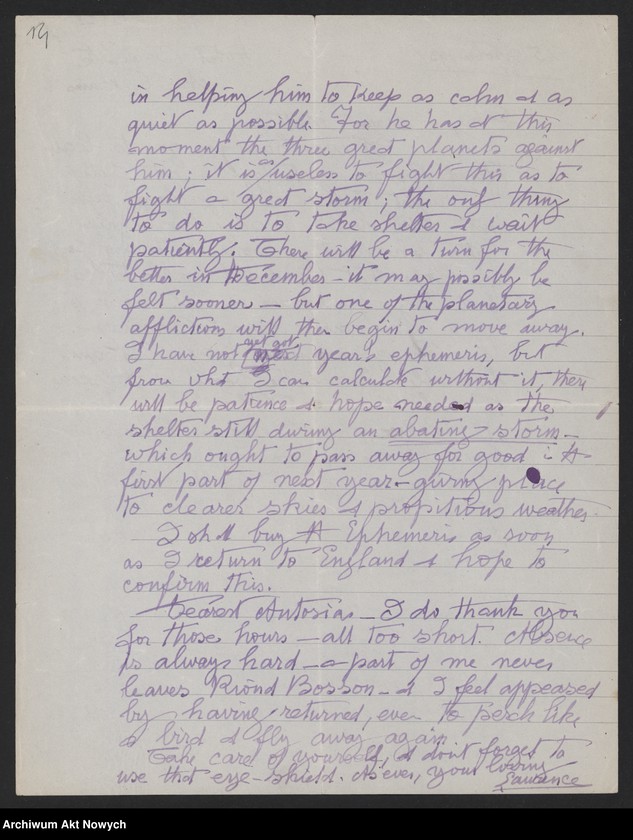 in helping him to keep as calm & as
quiet as possible. For he has at this
moment the three great planets against
him; it is as useless to fight this as to
fight a great storm; the only thing
to do is to take shelter & wait
patiently. There will be a turn for the
better in December - it may possibly be
felt sooner - but one of the planetary
afflictions will then begin to move away.
I have not yet got next year's ephemeris, but
from what I can calculate without it, there
will be patience & hope needed as the
shelter still during an abating storm -
which ought to pass away for good in the
first part of next year - giving place
to clearer skies & propitious weather.
I shall buy the Ephemeris as soon
as I return to England & hope to
confirm this.
Dearest Antosia - I do thank you
for those hours - all too short. Absence
is always hard - a part of me never
leaves Riond Bosson - & I feel appeased
by having returned, even to perch like
a bird & fly away again.
Take care of yourself, & don't forget to
use that eye-shield. As ever, your loving
Laurence
Archiwum Akt Nowych